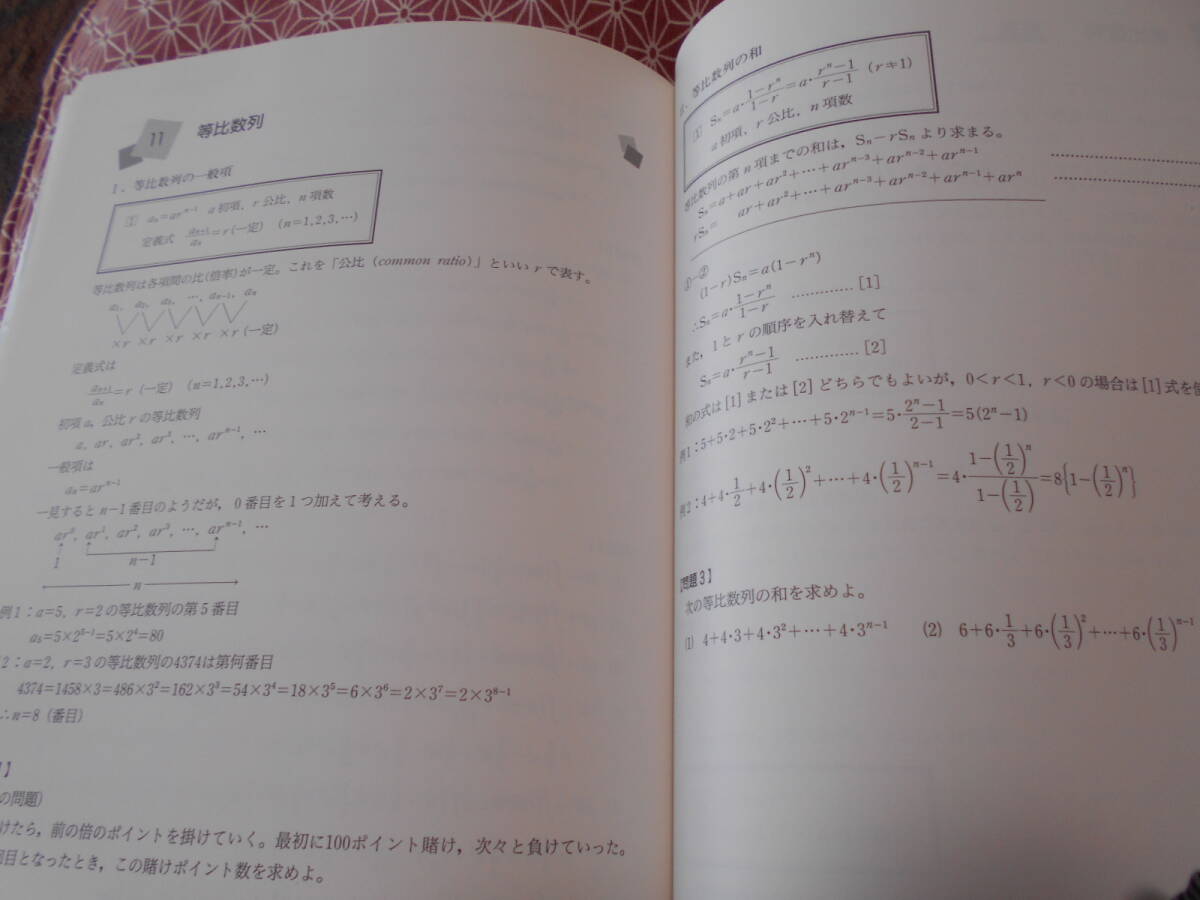 11 等比数列
I．等比数列の一般項
① aₙ=arⁿ⁻¹ a 初項，r 公比，n 項数
定義式 aₙ₊₁/aₙ=r (一定) (n=1,2,3,…)
等比数列は各項間の比(倍率)が一定。これを「公比（common ratio）」といい r で表す。
a₁, a₂, a₃, …, aₙ₋₁, aₙ
×r ×r ×r ×r ×r (一定)
定義式は
aₙ₊₁/aₙ=r (一定) (n=1,2,3,…)
初項 a，公比 r の等比数列
a, ar, ar², ar³, …, arⁿ⁻¹, …
一般項は
aₙ=arⁿ⁻¹
一見すると n−1 番目のようだが，0 番目を 1 つ加えて考える。
ar⁰, ar¹, ar², ar³, …, arⁿ⁻¹, …
1 n−1
n
例1：a=5, r=2 の等比数列の第 5 番目
a₅=5×2⁵⁻¹=5×2⁴=80
2：a=2, r=3 の等比数列の4374は第何番目
4374=1458×3=486×3²=162×3³=54×3⁴=18×3⁵=6×3⁶=2×3⁷=2×3⁸⁻¹
∴n=8 (番目)
】
の問題)
けたら，前の倍のポイントを掛けていく。最初に100ポイント賭け，次々と負けていった。
回目となったとき，この賭けポイント数を求めよ。
．等比数列の和
① Sₙ=a・(1−rⁿ)/(1−r)=a・(rⁿ−1)/(r−1) (r≠1)
a 初項，r 公比，n 項数
等比数列の第 n 項までの和は，Sₙ−rSₙ より求まる。
Sₙ=a+ar+ar²+…+arⁿ⁻³+arⁿ⁻²+arⁿ⁻¹ …………
rSₙ= ar+ar²+…+arⁿ⁻³+arⁿ⁻²+arⁿ⁻¹+arⁿ …………
①−②
(1−r)Sₙ=a(1−rⁿ)
∴Sₙ=a・(1−rⁿ)/(1−r) ………… [1]
また，1 と r の順序を入れ替えて
Sₙ=a・(rⁿ−1)/(r−1) ………… [2]
和の式は [1] または [2] どちらでもよいが，0<r<1, r<0 の場合は [1] 式を使
例1：5+5・2+5・2²+…+5・2ⁿ⁻¹=5・(2ⁿ−1)/(2−1)=5(2ⁿ−1)
例2：4+4・1/2+4・(1/2)²+…+4・(1/2)ⁿ⁻¹=4・(1−(1/2)ⁿ)/(1−(1/2))=8{1−(1/2)ⁿ}
【問題 3】
次の等比数列の和を求めよ。
(1) 4+4・3+4・3²+…+4・3ⁿ⁻¹ (2) 6+6・1/3+6・(1/3)²+…+6・(1/3)ⁿ⁻¹